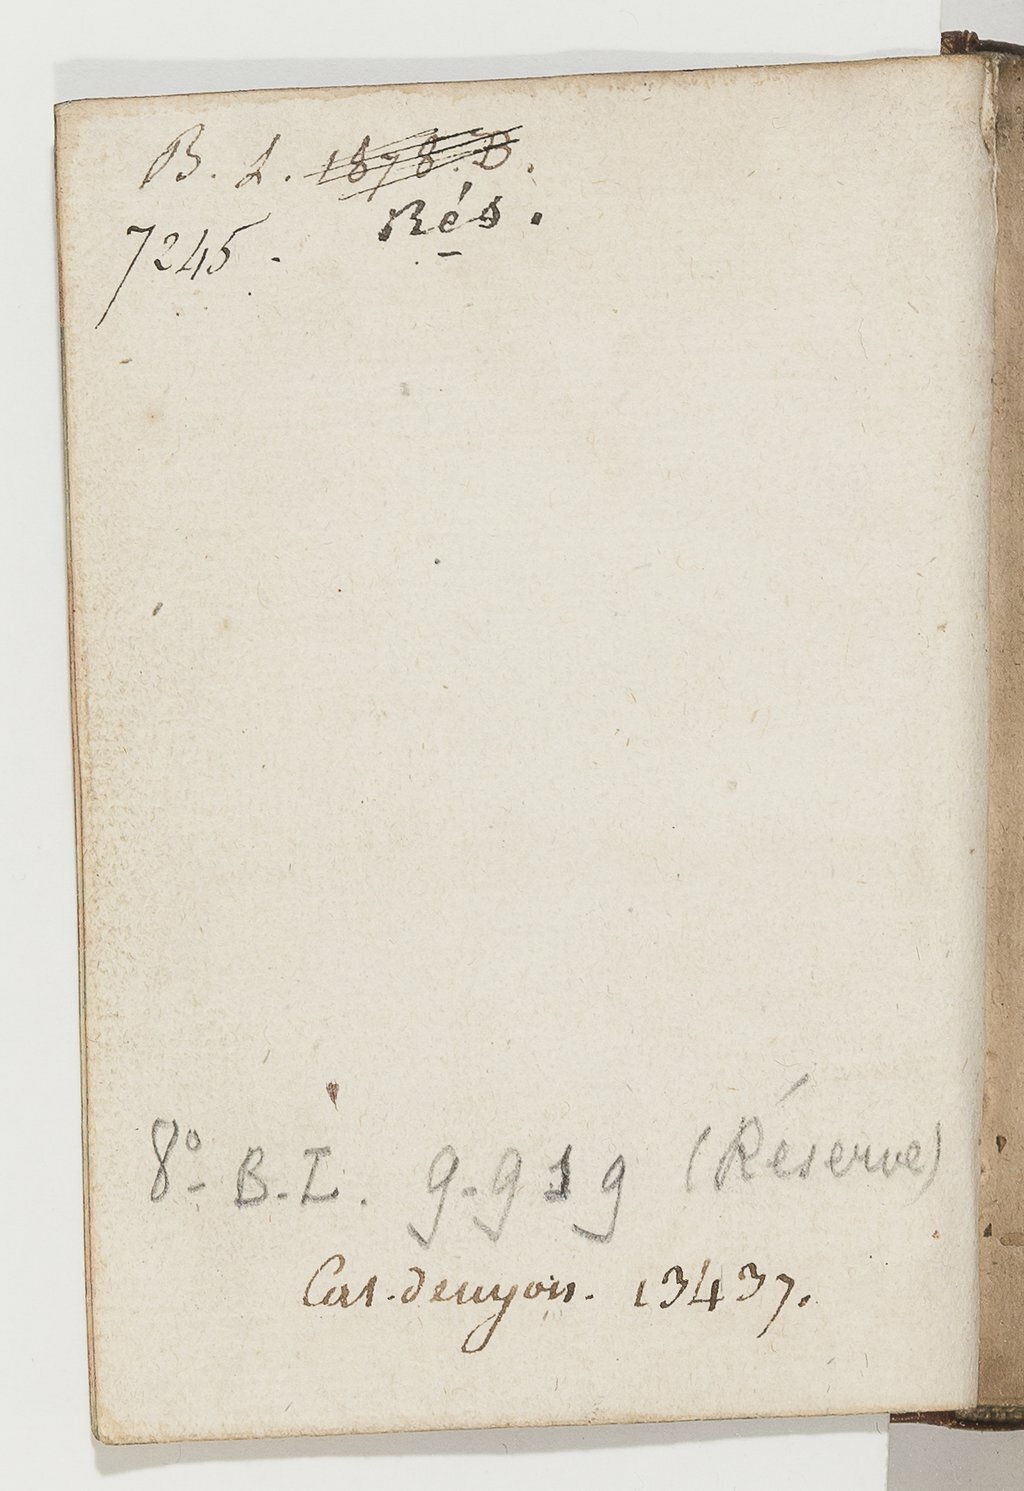 B. L. 1878. B.
Rés.
7245.
8° B. L. 9.919 (Réserve)
Cat. de nyon. 13437.